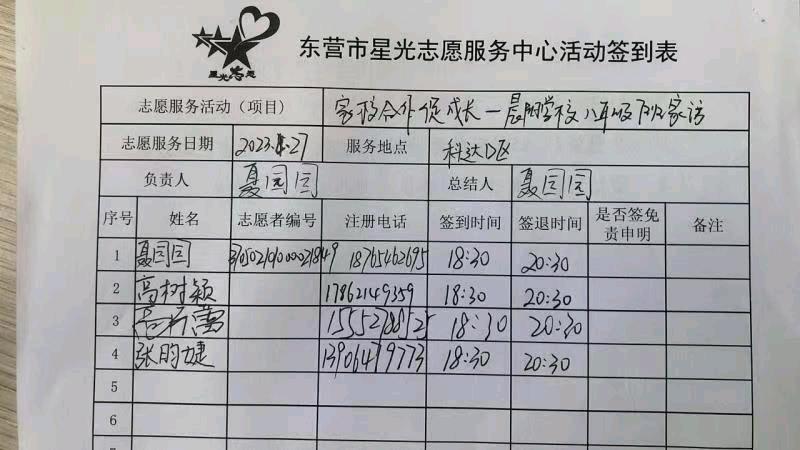 星光志愿
东营市星光志愿服务中心活动签到表
志愿服务活动（项目） 家校合作促成长一晨阳学校八年级下班家访
志愿服务日期 2023.4.27 服务地点 科达D区
负责人 聂园园 总结人 聂园园
序号 姓名 志愿者编号 注册电话 签到时间 签退时间 是否签免责申明 备注
1 聂园园 18765462695 18:30 20:30
2 高树颖 17862149359 18:30 20:30
3 18:30 20:30
4 张昀婕 13906479773 18:30 20:30
5
6